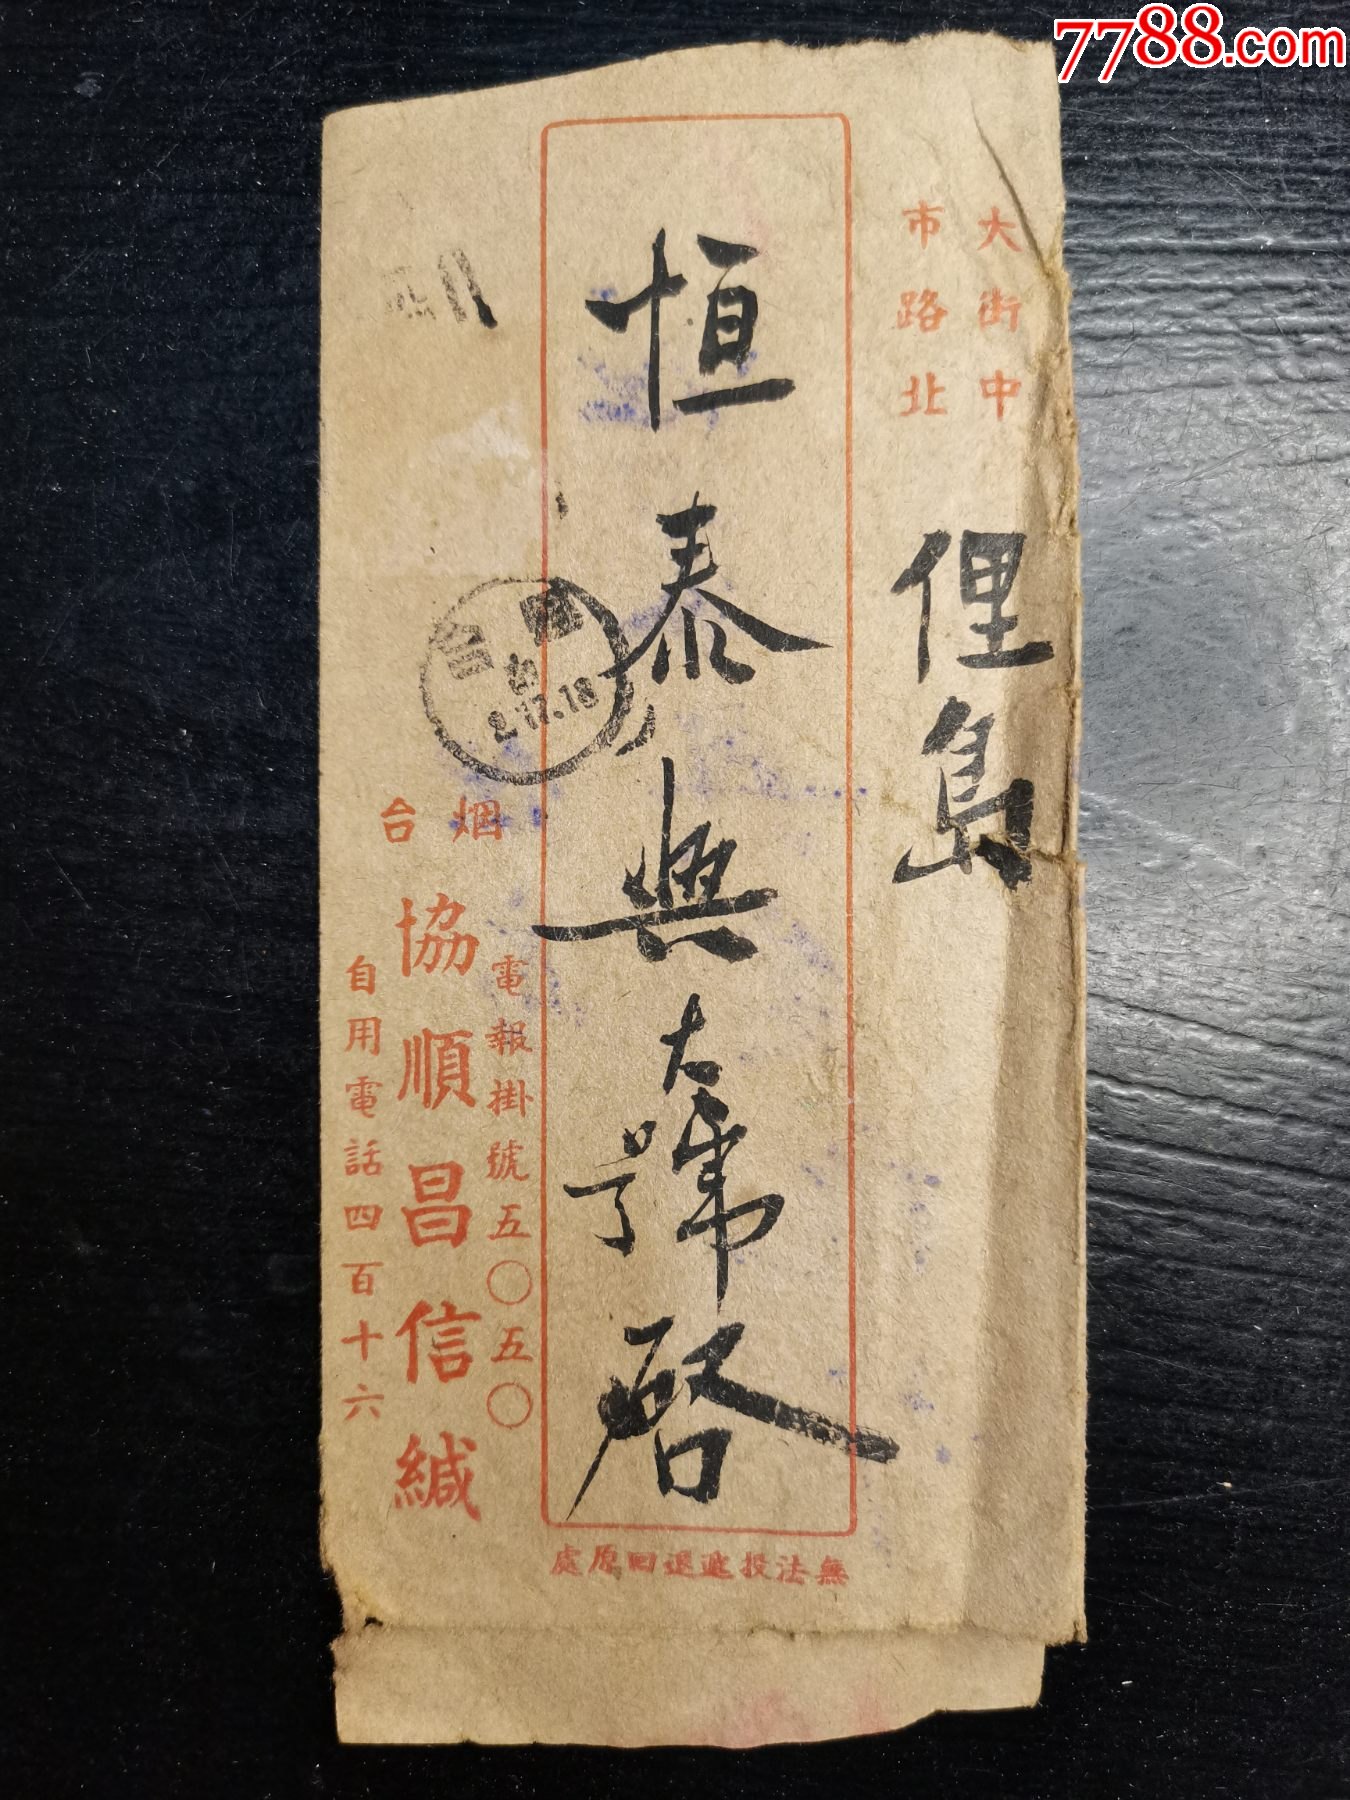 7788.com
大街中
市路北
俚島
恒泰興大號啓
烟台
2.17.18
電報掛號五〇五〇
協順昌信緘
自用電話四百十六
無法投遞退回原處